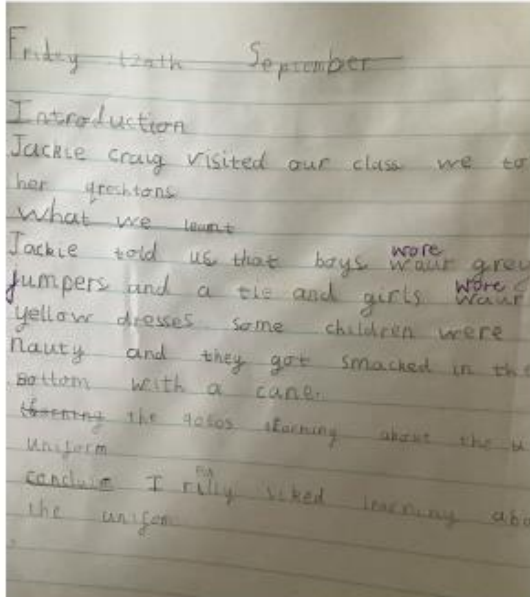 Friday September
Introduction
Jackie craig visited our class we to
her qreshtons
What we learnt
Jackie told us that boys wore waur grey
jumpers and a tie and girls wore waur
yellow dresses some children were
nauty and they got smacked in the
bottom with a cane.
the about the u
uniform
I rilly liked learning abo
the unifom